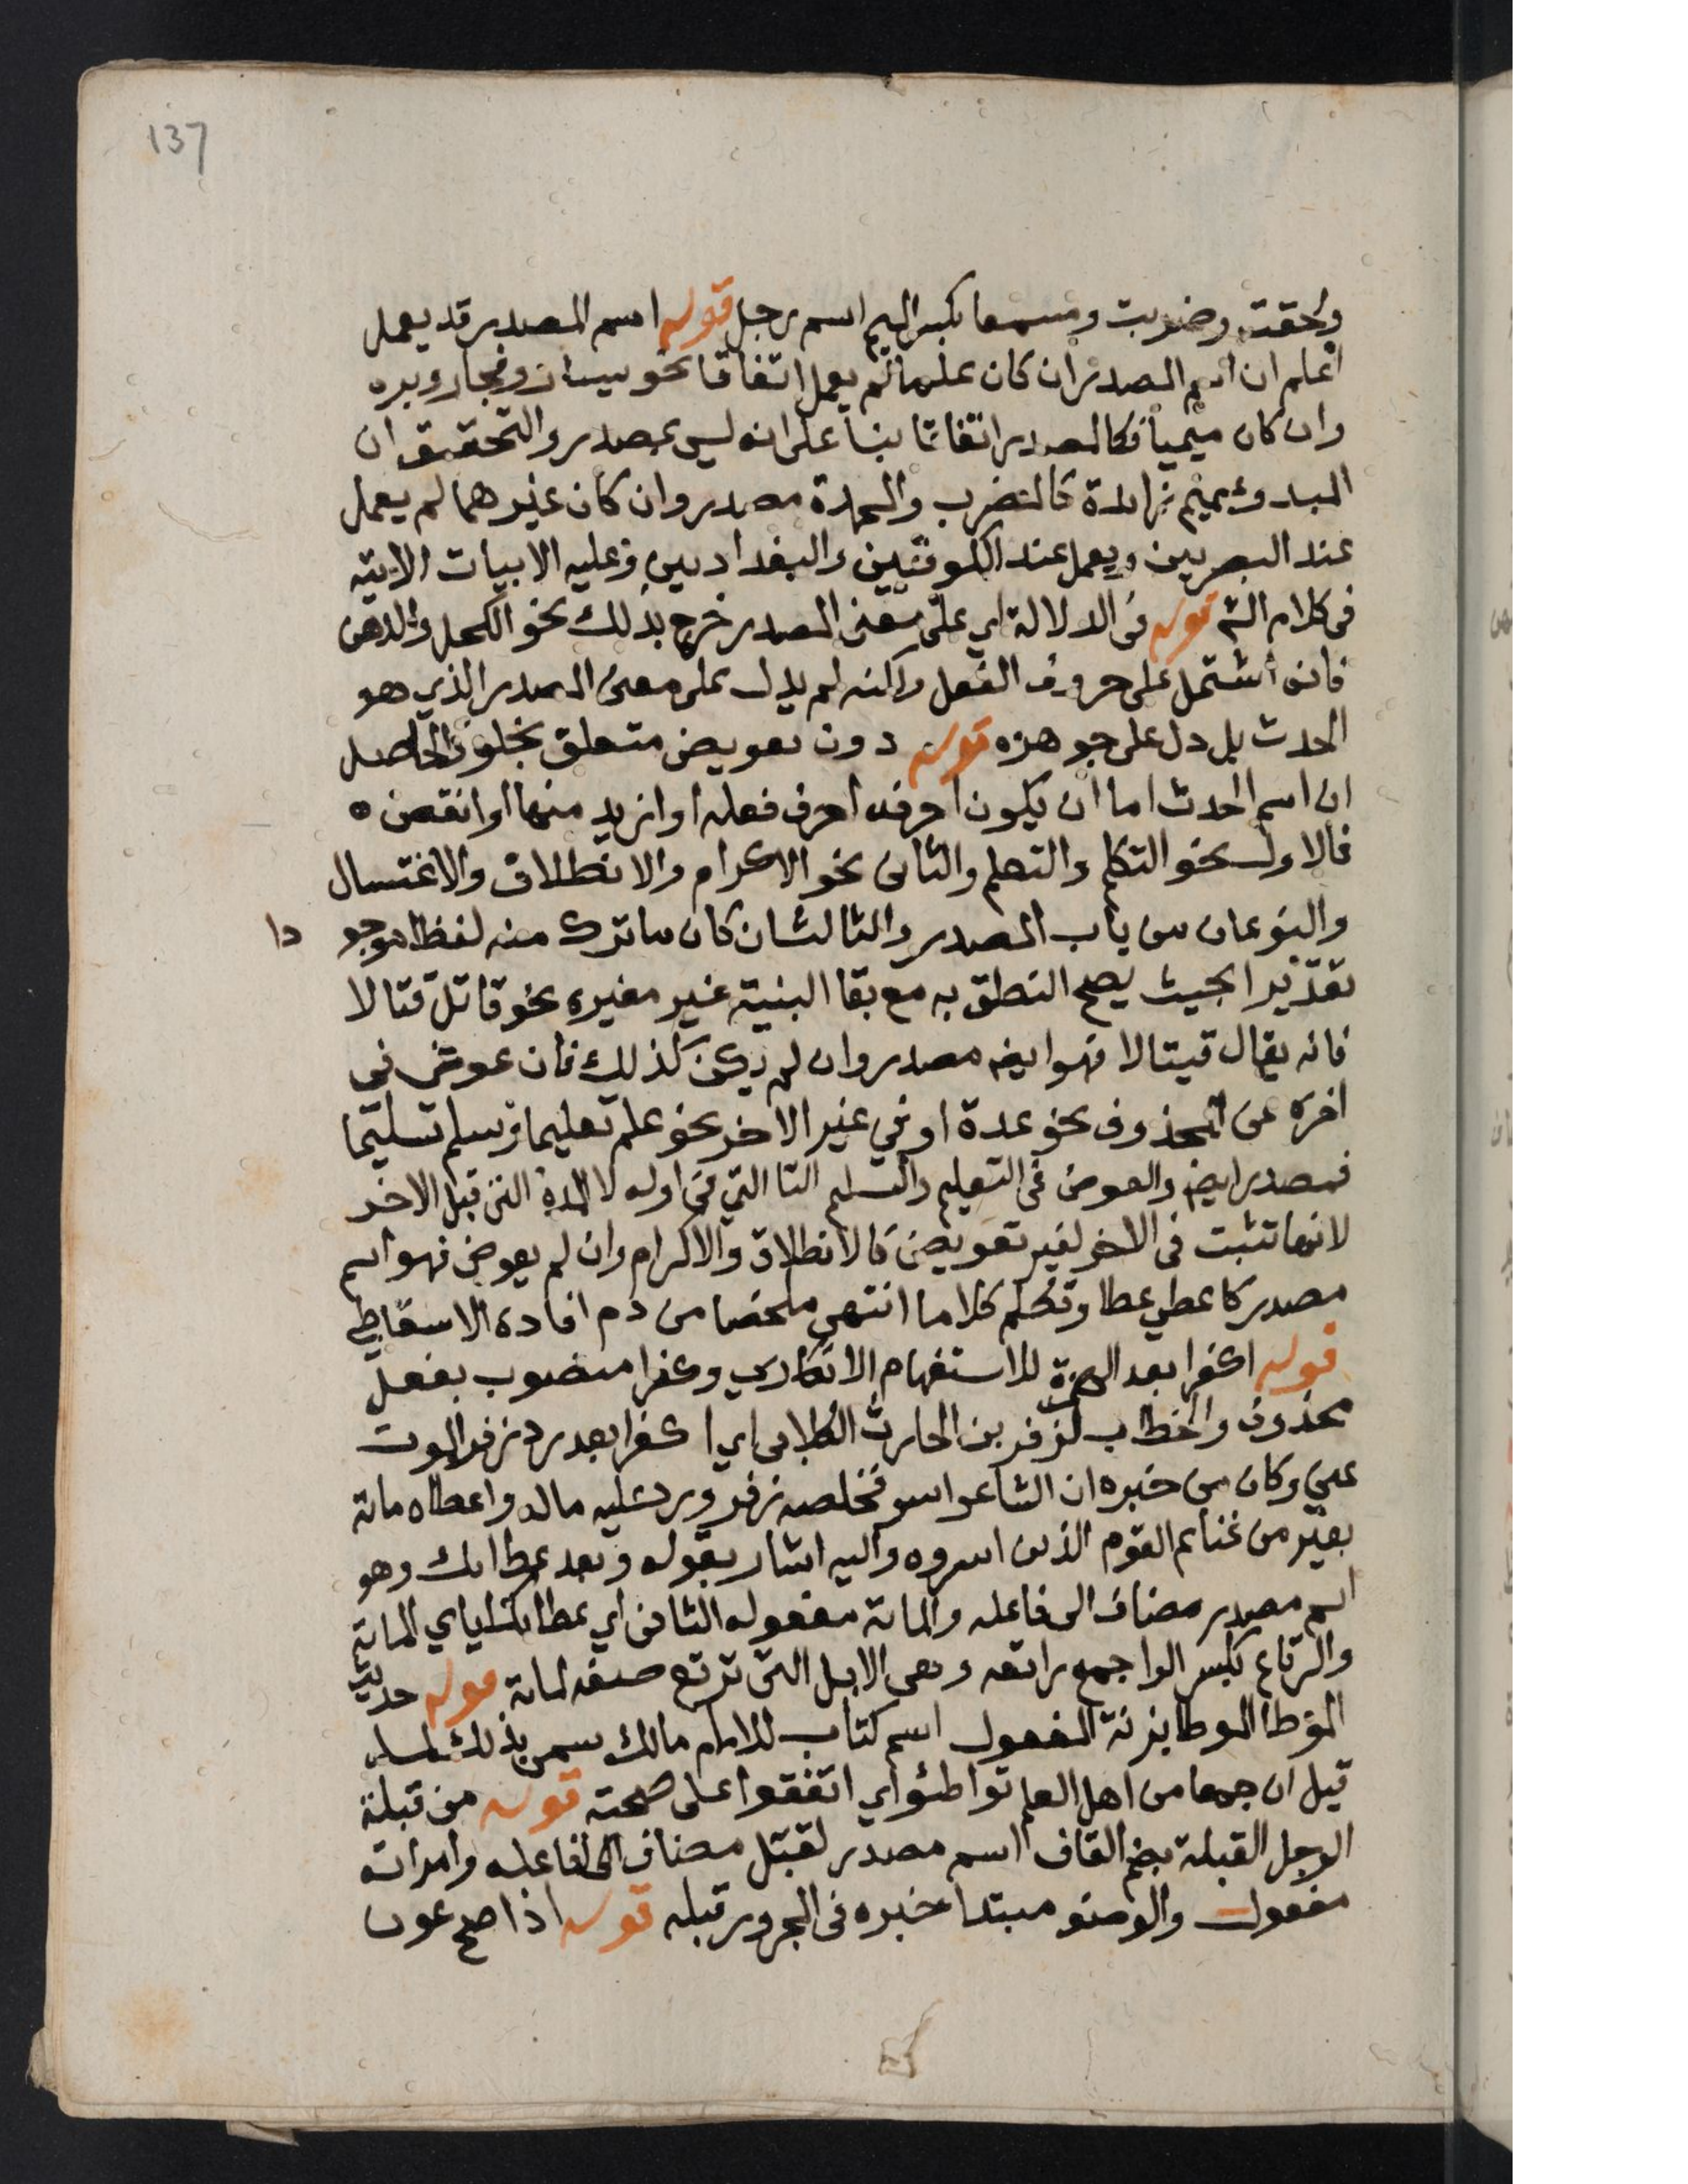 137
ولحقت وضربت ومسمعا بكسر الميم اسم رجل قوله اسم المصدر قد يعمل
اعلم ان اسم المصدر ان كان علما لم يعمل اتفاقا نحو يسار وفجار وبره
وان كان ميميا فكالمصدر اتفاقا بناء على انه ليس بمصدر والتحقيق ان
المبدوء بميم زائدة كالمضرب والمحمدة مصدر وان كان غيرهما لم يعمل
عند البصريين ويعمل عند الكوفيين والبغداديين وعليه الابيات الاتيه
فى كلام الشم قوله فى الدلالة اي على معنى المصدر خرج بذلك نحو الكحل والدهن
فانه اشتمل على حروف الفعل ولكنه لم يدل على معنى المصدر الذي هو
الحدث بل دل على جوهره قوله دون تعويض متعلق بخلوه والحاصل
ان اسم الحدث اما ان يكون احرفه احرف فعله او ازيد منها او انقص ه
فالاول نحو التكلم والتعلم والثانى نحو الاكرام والانطلاق والاغتسال
والنوعان من باب المصدر والثالث ان كان ما ترك منه لفظا موجو دا
تقديرا بحيث يصح النطق به مع بقا البنية غير مغيره نحو قاتل قتالا
فانه يقال قيتالا فهو ايضا مصدر وان لم يكن كذلك فان عوض في
اخره عن المحذوف نحو عدة او في غير الاخر نحو علم تعليما وسلم تسليما
فمصدر ايضا والعوض فى التعليم والتسليم التا التي فى اوله لا المدة التى قبل الاخر
لانها تثبت فى الاخر لغير تعويض كالانطلاق والاكرام وان لم يعوض فهو اسم
مصدر كاعطي عطا وتكلم كلاما انتهى ملخصا من دم افاده الاسقاطي
قوله اكفرا بعد الهمزة للاستفهام الانكاري وكفرا منصوب بفعل
محذوف والخطاب لزفر بن الحارث الكلابى اي اكفرا بعد رد زفر الموت
عني وكان من خبره ان الشاعر اسر فخلصه زفر ورد عليه ماله واعطاه مائة
بعير من غنائم القوم الذين اسروه واليه اشار بقوله وبعد عطائك وهو
اسم مصدر مضاف الى فاعله والمائة مفعوله الثانى اي عطائك اياي المائة
والرتاع بكسر الرا جمع راتعه وهى الابل التى ترتع صفه لمائة قوله حديث
الموطا الموطا بزنة المفعول اسم كتاب للامام مالك سمى بذلك لما
قيل ان جمعا من اهل العلم تواطئو اي اتفقوا على صحته قوله من قبلة
الرجل القبلة بضم القاف اسم مصدر لقبل مضاف الى فاعله وامراته
مفعول والوضو مبتدا خبره فى المجرور قبله قوله اذا صح عون